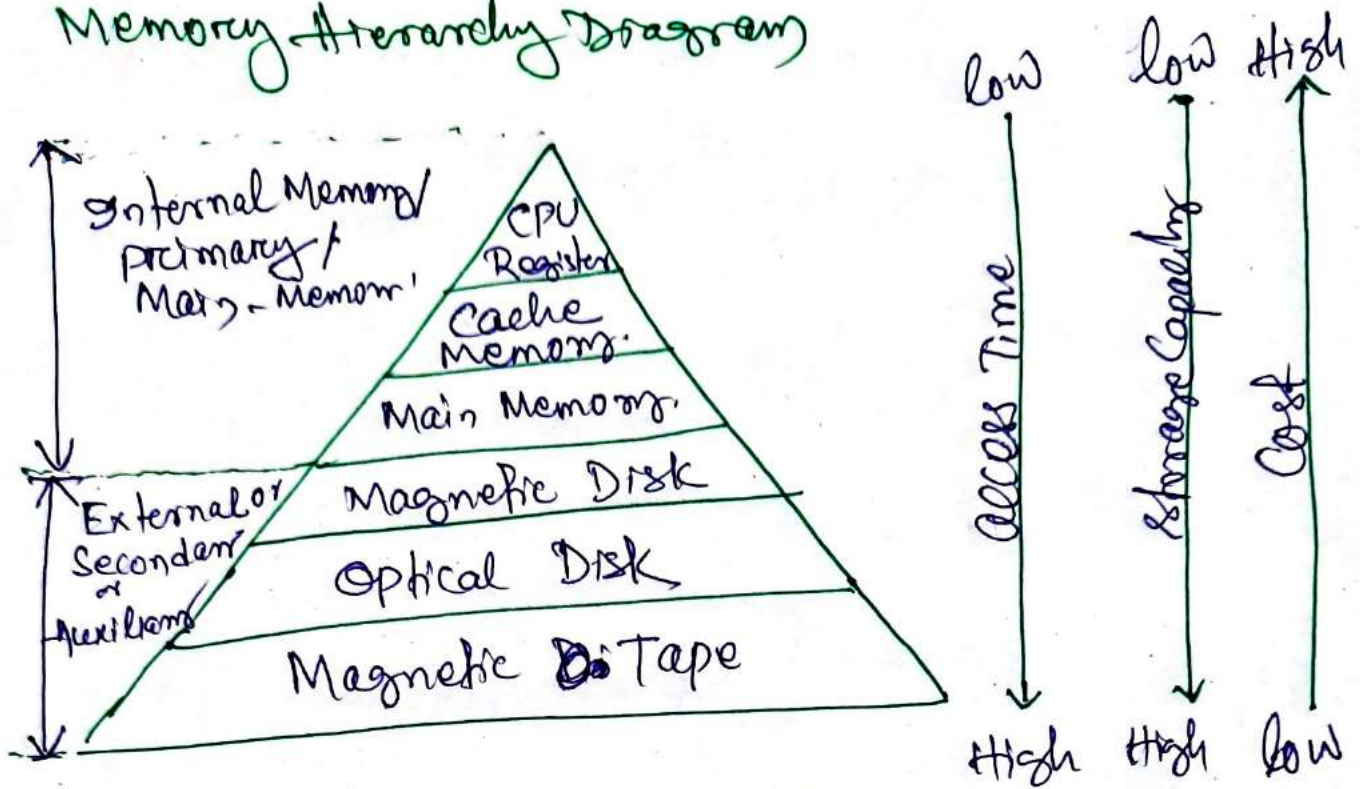 Memory Hierarchy Diagram
Internal Memory/
primary/
Main-Memory
External or
Secondary
or
Auxiliary
CPU
Register
Cache
Memory.
Main Memory.
Magnetic Disk
Optical Disk
Magnetic Tape
low
Access Time
High
low
Storage Capacity
High
High
Cost
low